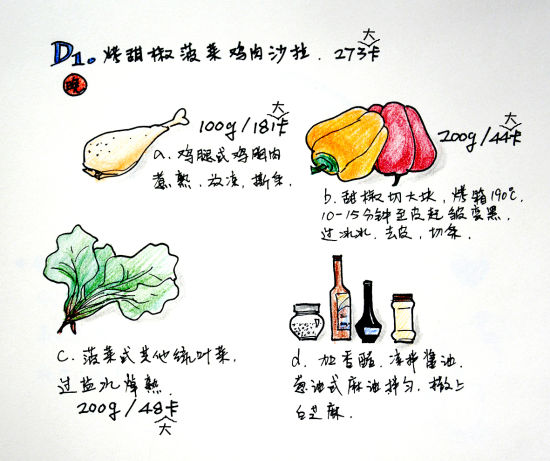 D1。烤甜椒菠菜鸡肉沙拉. 273大卡
晚
100g/181大卡
a. 鸡腿式鸡胸肉
煮熟. 放凉, 撕条.
200g/44大卡
b. 甜椒切大块, 烤箱190℃.
10-15分钟至皮起皱变黑.
过冰水. 去皮, 切条.
c. 菠菜式其他绿叶菜.
过盐水焯熟.
200g/48大卡
d. 加香醋. 凉拌酱油.
葱油式麻油拌匀. 撒上
白芝麻.